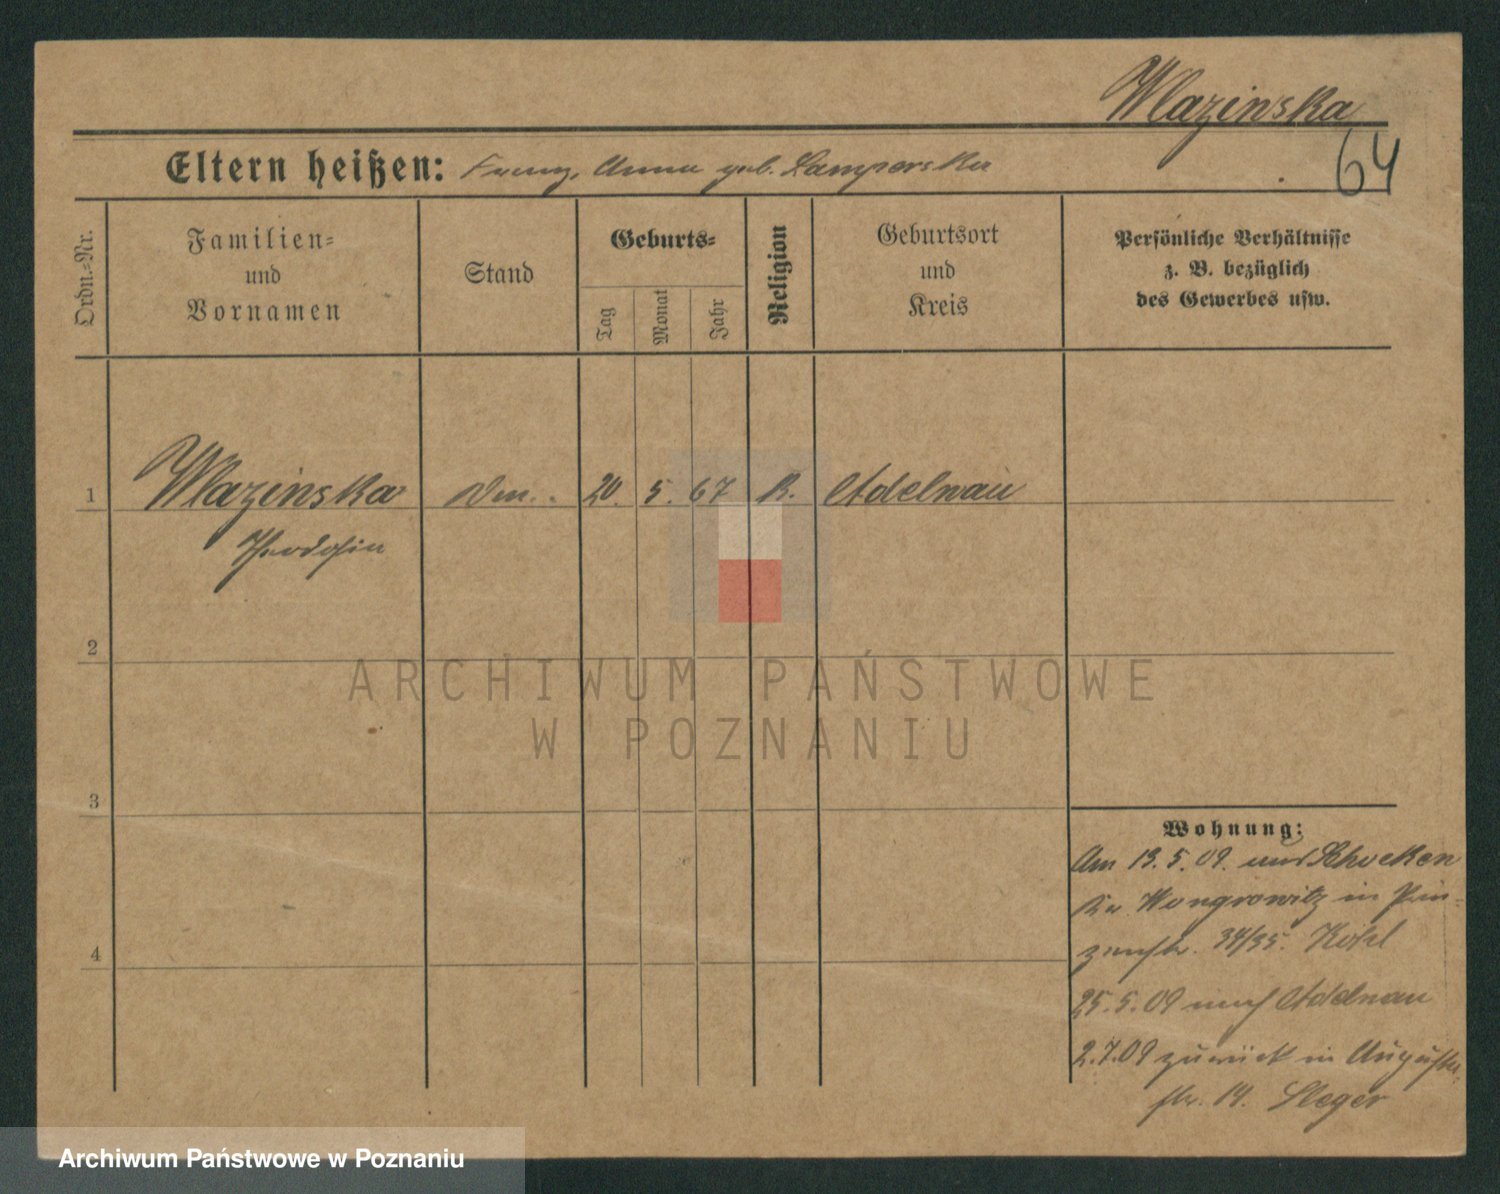 Wlazinska
64
Eltern heißen: Franz, Anna geb. Lamperska
Ordn.-Nr.
Familien-
und
Vornamen
Stand
Geburts-
Tag
Monat
Jahr
Religion
Geburtsort
und
Kreis
Persönliche Verhältnisse
z. B. bezüglich
des Gewerbes usw.
1 Wlazinska 20. 5. 67 K. Adelnau
Theodosia
2
3
4
Wohnung:
Am 13.5.09. aus Schocken
Kr. Wongrowitz in Prin-
zenstr. 34/35.
25.5.09 nach Adelnau
2.7.09 zurück in Augusta-
str. 14. Steger
ARCHIWUM PAŃSTWOWE
W POZNANIU
Archiwum Państwowe w Poznaniu